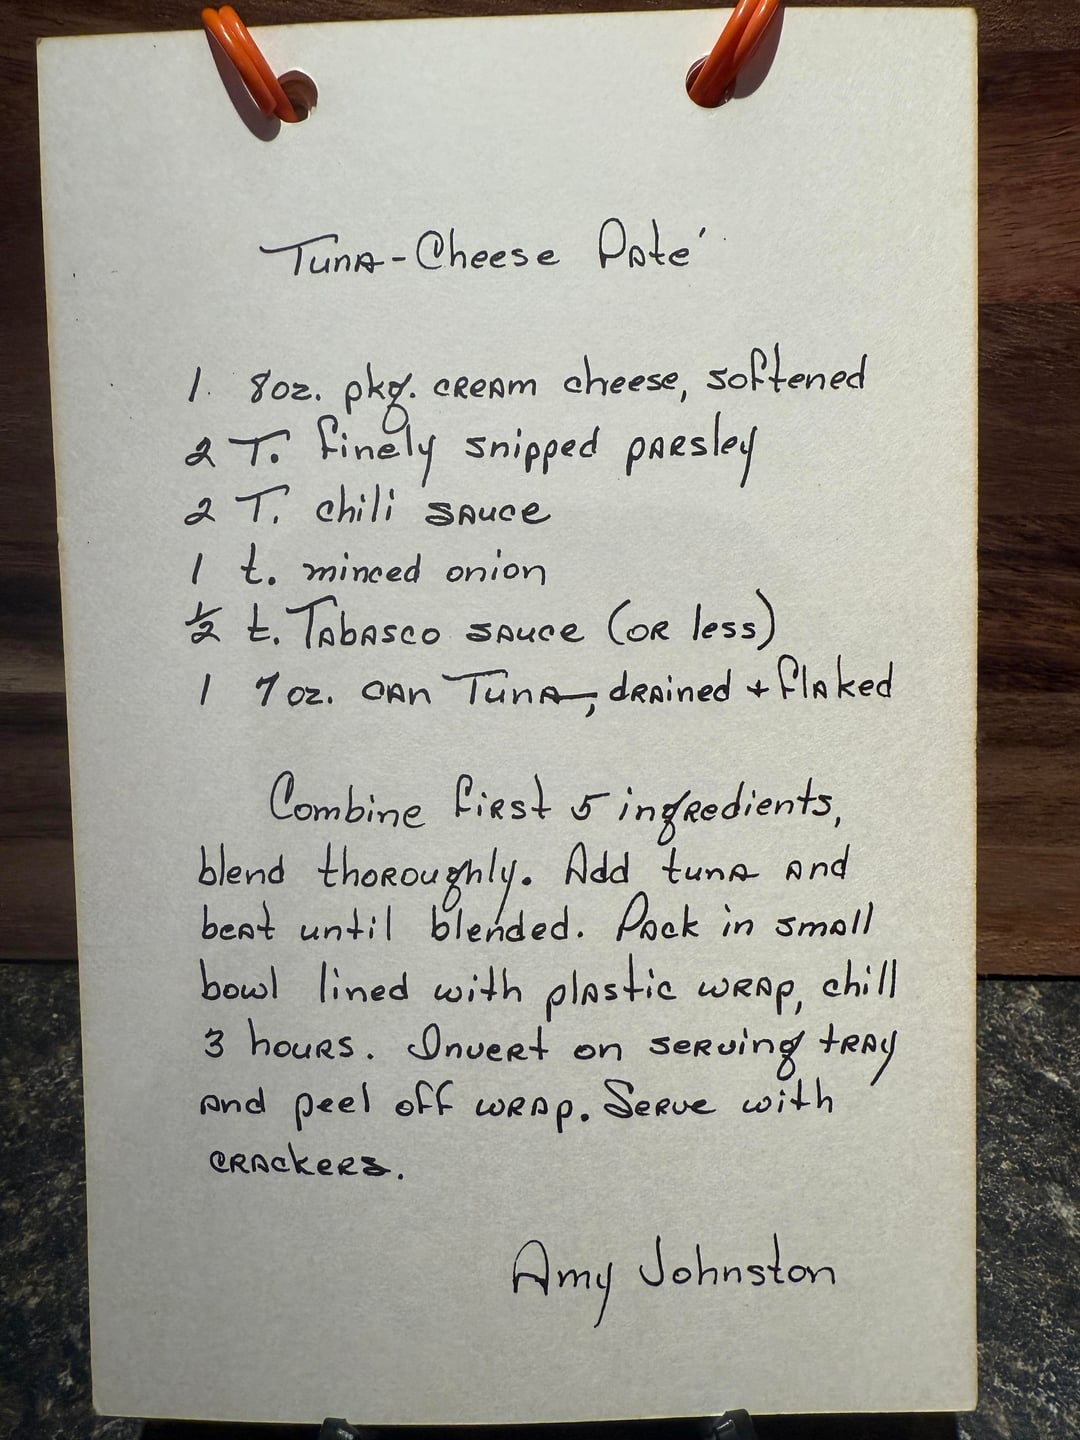 Tuna-Cheese Paté
1 8oz. pkg. cream cheese, softened
2 T. finely snipped parsley
2 T. chili sauce
1 t. minced onion
½ t. Tabasco sauce (or less)
1 7 oz. can Tuna, drained + flaked
Combine first 5 ingredients,
blend thoroughly. Add tuna and
beat until blended. Pack in small
bowl lined with plastic wrap, chill
3 hours. Invert on serving tray
and peel off wrap. Serve with
crackers.
Amy Johnston